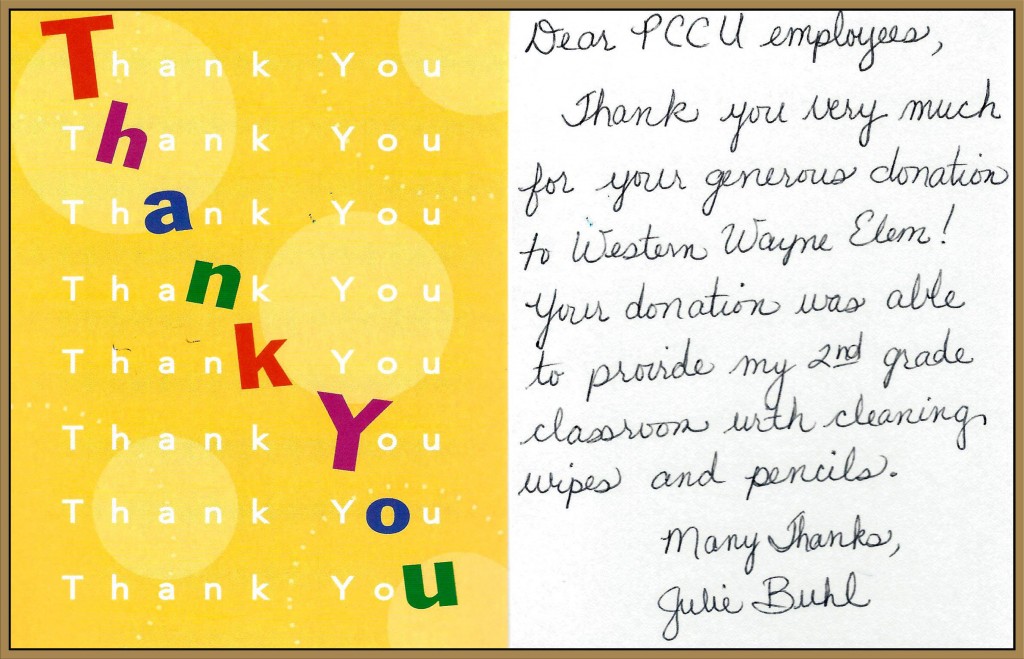 Thank You
Thank You
Thank You
Thank You
Thank You
Thank You
Thank You
Thank You
Dear PCCU employees,
Thank you very much
for your generous donation
to Western Wayne Elem!
Your donation was able
to provide my 2nd grade
classroom with cleaning
wipes and pencils.
Many Thanks,
Julie Buhl